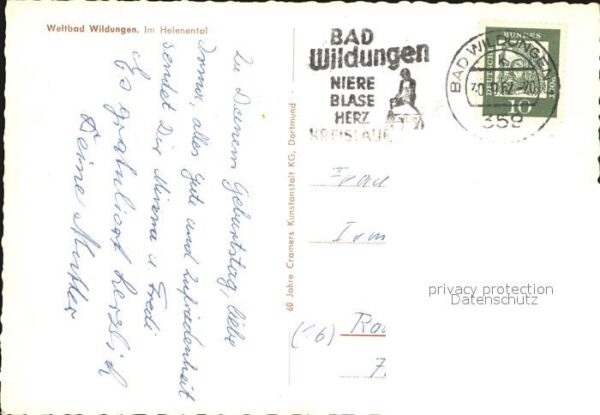 Weltbad Wildungen. Im Helenental
Zu Deinem Geburtstag, liebe
Irma, alles Gute und Zufriedenheit
sendet Dir Mirama u Fredi
Es gratuliert herzlich
Deine Mutter
60 Jahre Cramers Kunstanstalt KG, Dortmund
BAD
Wildungen
NIERE
BLASE
HERZ
KREISLAUF
BAD WILDUNGEN
359
BUNDES
10
Frau
Irm
(16)
privacy protection
Datenschutz